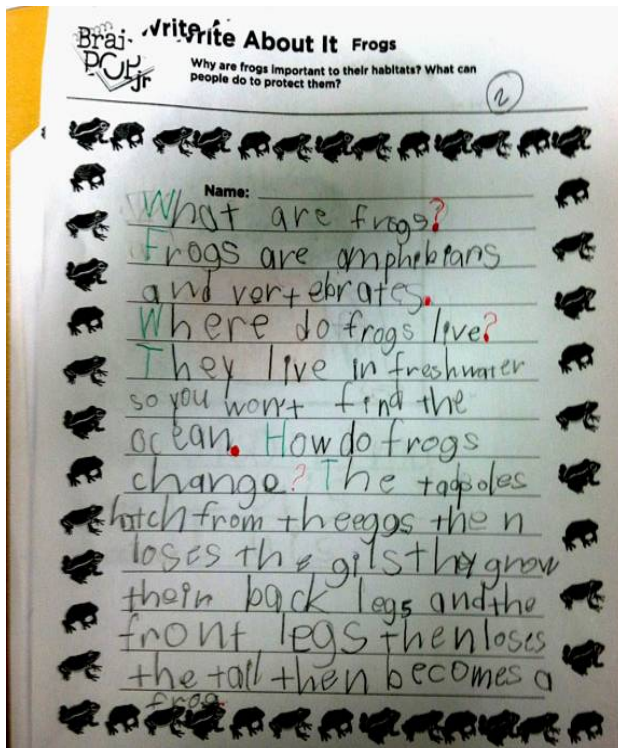 Brai-
POP
jr
Write Write About It Frogs
Why are frogs important to their habitats? What can
people do to protect them?
2
Name:
What are frogs?
Frogs are amphibians
and vertebrates.
Where do frogs live?
They live in freshwater
so you won't find the
ocean. How do frogs
change? The tadpoles
hatch from the eggs then
loses the gils they grow
their back legs and the
front legs then loses
the tail then becomes a
frog